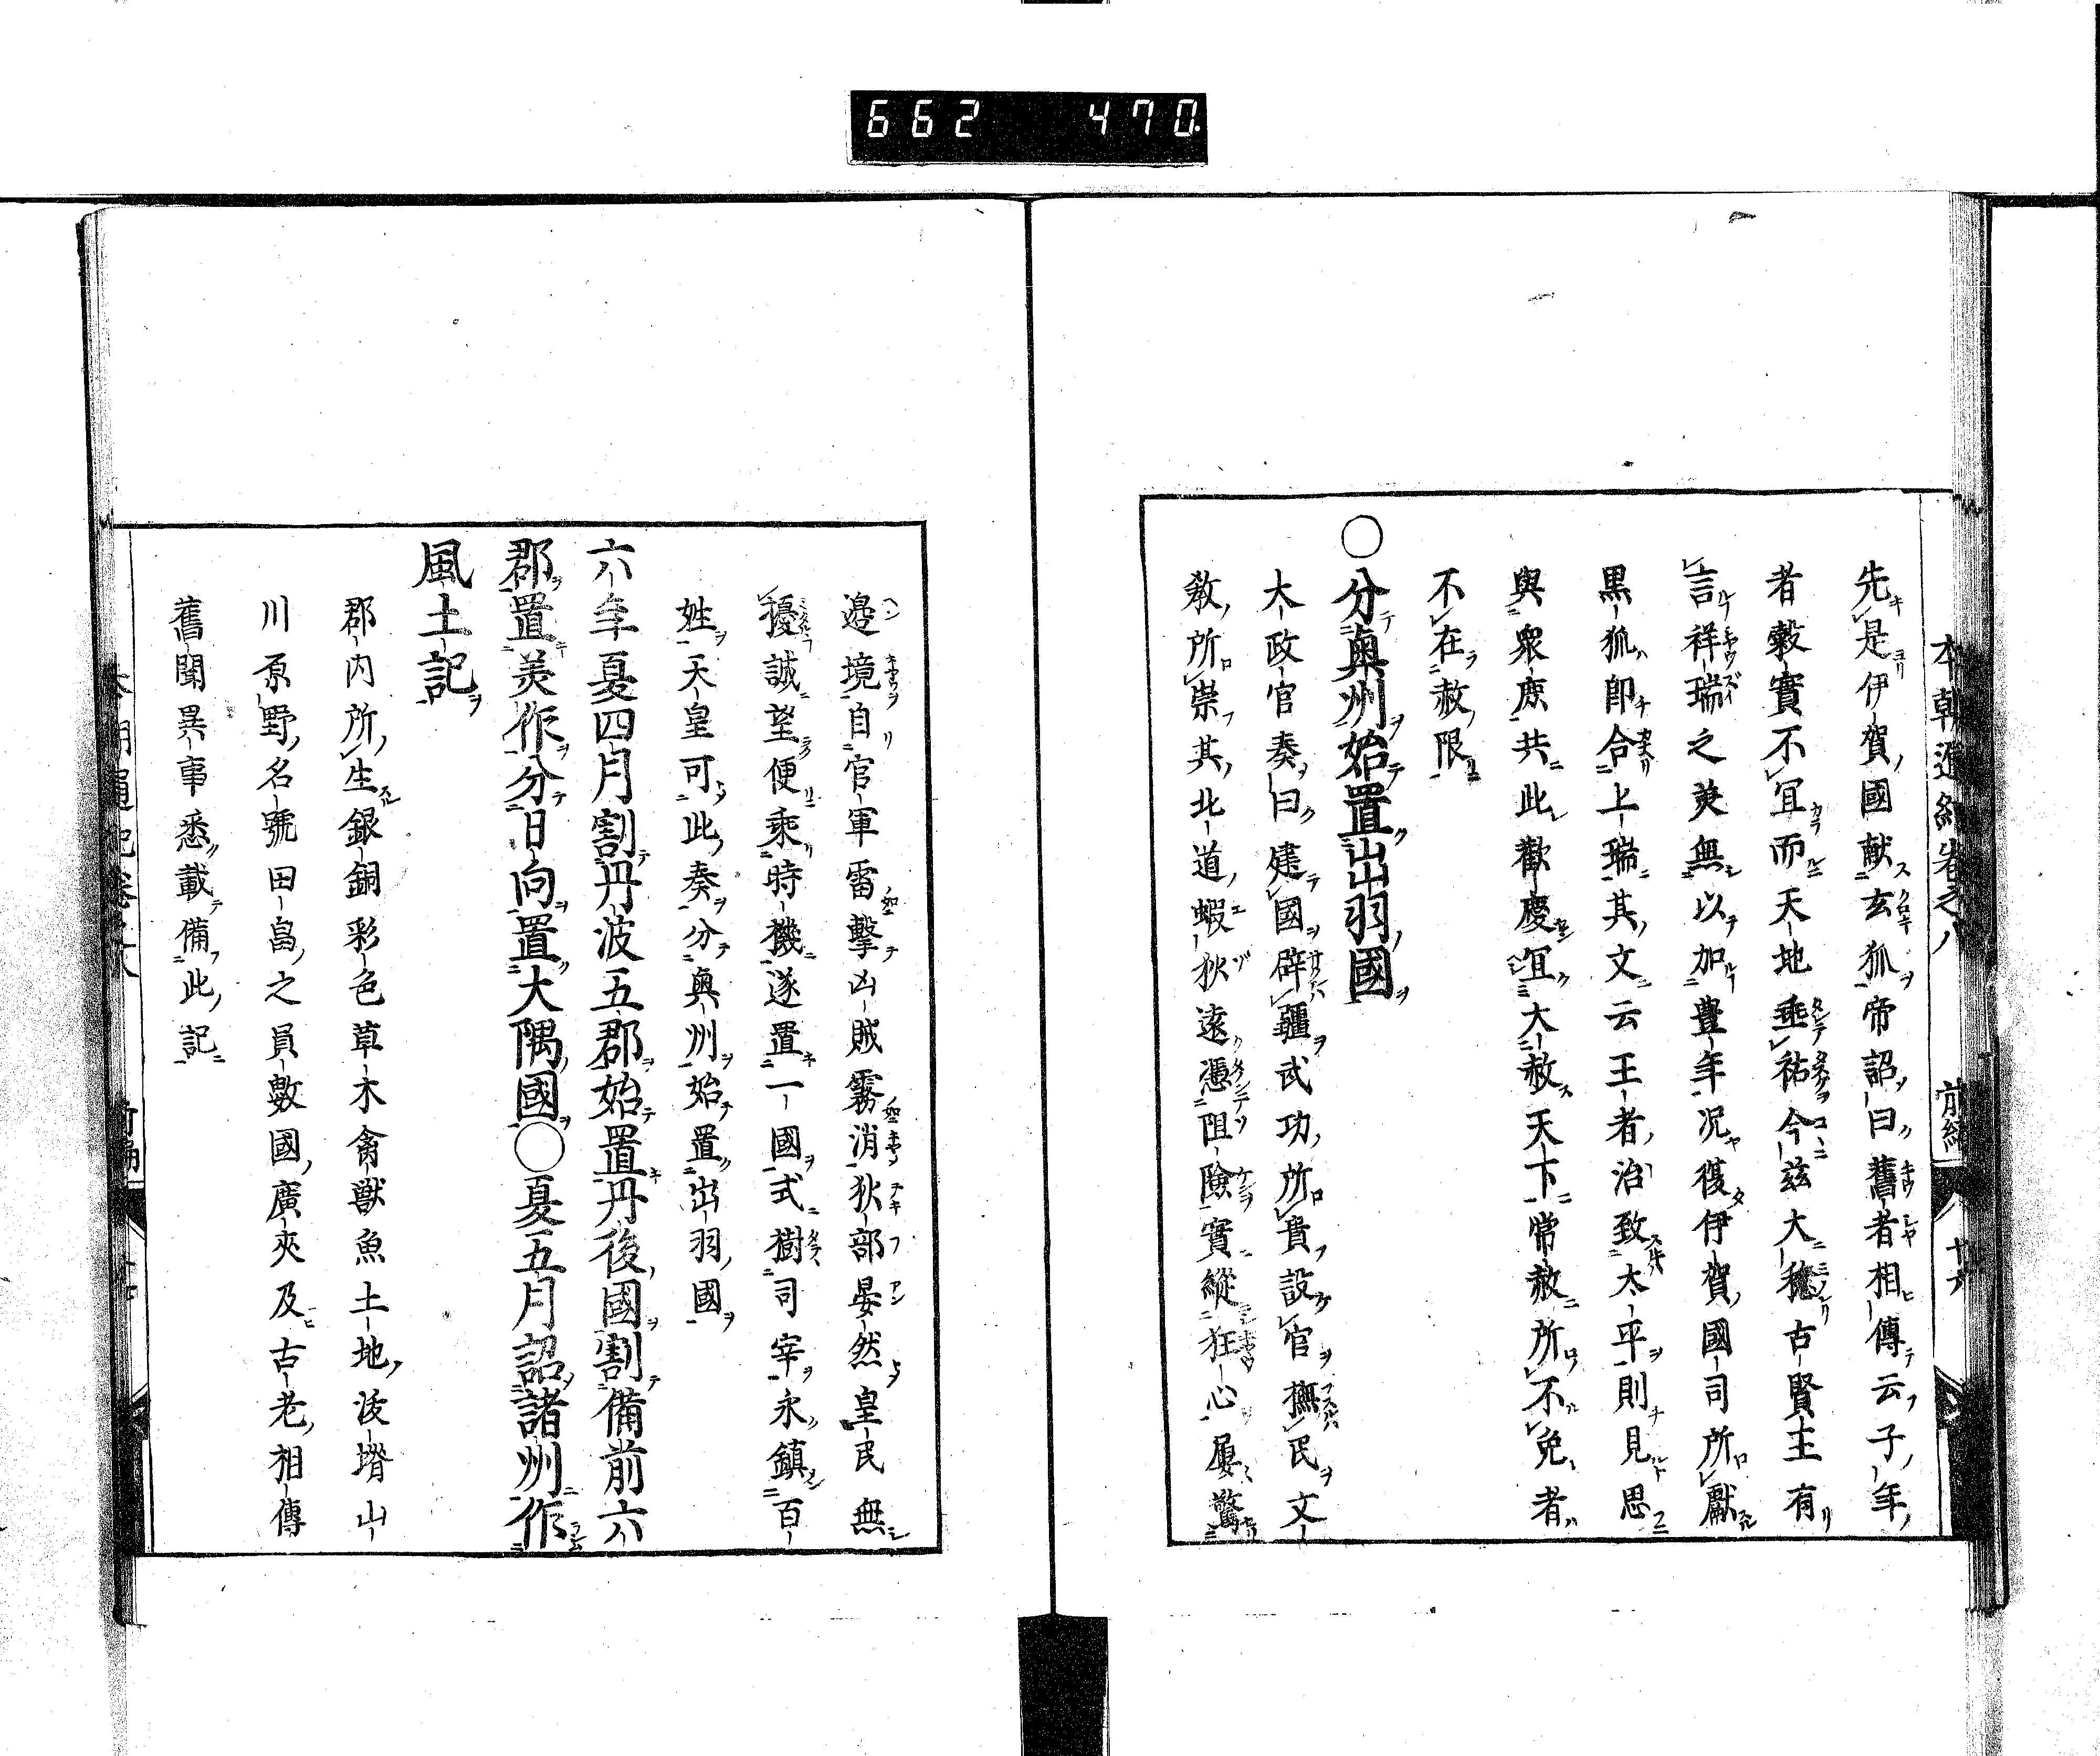 662 470
本朝通紀卷之八 前編 八 廿六
先是伊賀國献玄狐帝詔曰舊者相傳云子年
者穀實不宜而天地垂祐今茲大稔古賢王有
言祥瑞之美無以加豊年況復伊賀國司所獻
黒狐即合上瑞其文云王者治致太平則見思
與衆庶共此歡慶宜大赦天下常赦所不免者
不在赦限
○分奥州始置出羽國
大政官奏曰建國辟疆武功所貴設官撫民文
敎所崇其北道蝦狄遠憑阻險實縱狂心屡驚
邉境自官軍雷擊凶賊霧消狄部晏然皇民無
擾誠望便乘時機遂置一國式樹司宰永鎮百
姓天皇可此奏分奥州始置出羽國
六年夏四月割丹波五郡始置丹後國割備前六
郡置美作分日向置大隅國○夏五月詔諸州作
風土記
郡内所生銀銅彩色草木禽獸魚土地沃塉山
川原野名號田畠之員數國廣夾及古老相傳
舊聞異事悉載備此記